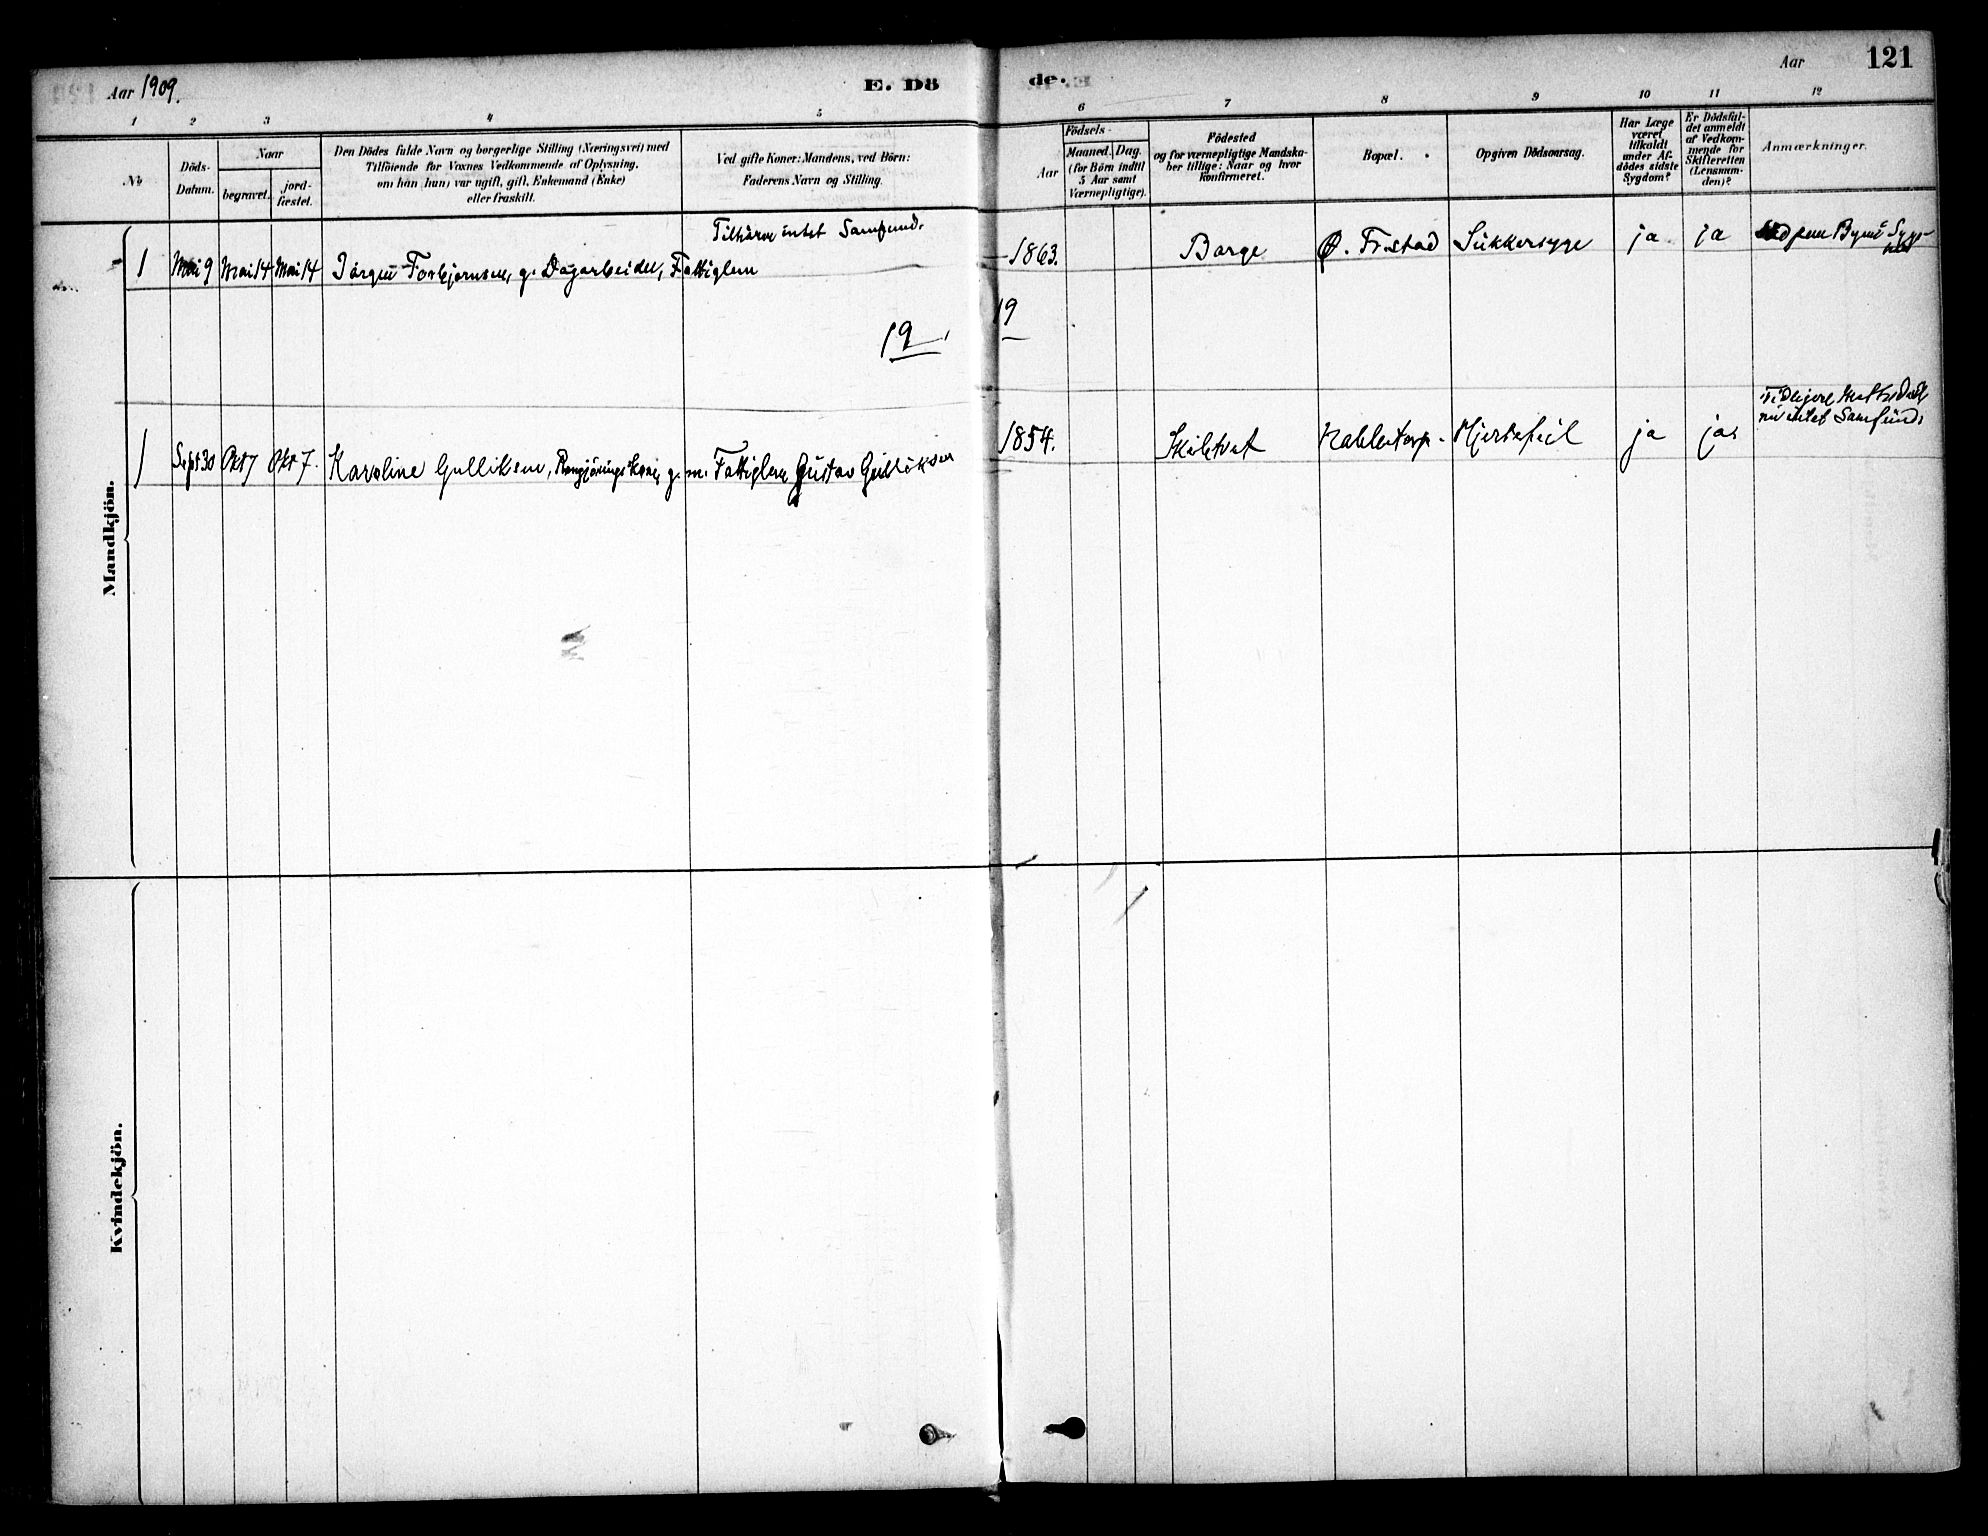 Aar 1909.
E. Döde.
Aar
121
1 2 3 4 5 6 7 8 9 10 11 12
№
Döds-
Datum.
Naar
begravet.
jord-
fæstet.
Den Dödes fulde Navn og borgerlige Stilling (Næringsvei) med
Tilföiende for Voxnes Vedkommende af Oplysning,
om han (hun) var ugift, gift, Enkemand (Enke)
eller fraskilt.
Ved gifte Koner: Mandens, ved Börn:
Faderens Navn og Stilling.
Födsels-
Aar
Maaned. Dag.
(for Börn indtil
5 Aar samt
Værnepligtige).
Födested
og for værnepligtige Mandska-
ber tillige: Naar og hvor
konfirmeret.
Bopæl.
Opgiven Dödsaarsag.
Har Læge
været
tilkaldt
under Af-
dödes sidste
Sygdom?
Er Dödsfal-
det anmeldt
af Vedkom-
mende for
Skifteretten
(Lensman-
den)?
Anmærkninger.
Mandkjön.
Tilhører intet Samfund.
1 Mai 9 Mai 14 Mai 14 Jørgen Torbjørnsen, g. Dagarbeider, Fattiglem 1863. Borge Ø. Fr.stad Sukkersyge ja ja
19
19
Tidligere
nu intet Samfund.
1 Sept 30 Okt 7 Okt 7. Karoline Gulliksen, Rengjøringskone, g. m. Fattiglem Gustav Gulliksen 1854. Skibtvet Nabbetorp. Hjertefeil ja ja
Kvindekjön.